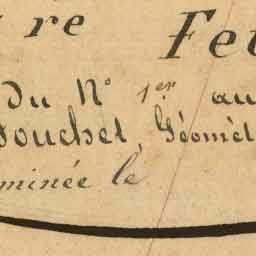 re Fe
du N° 1er au
Pouchet, Géomèt
minée le